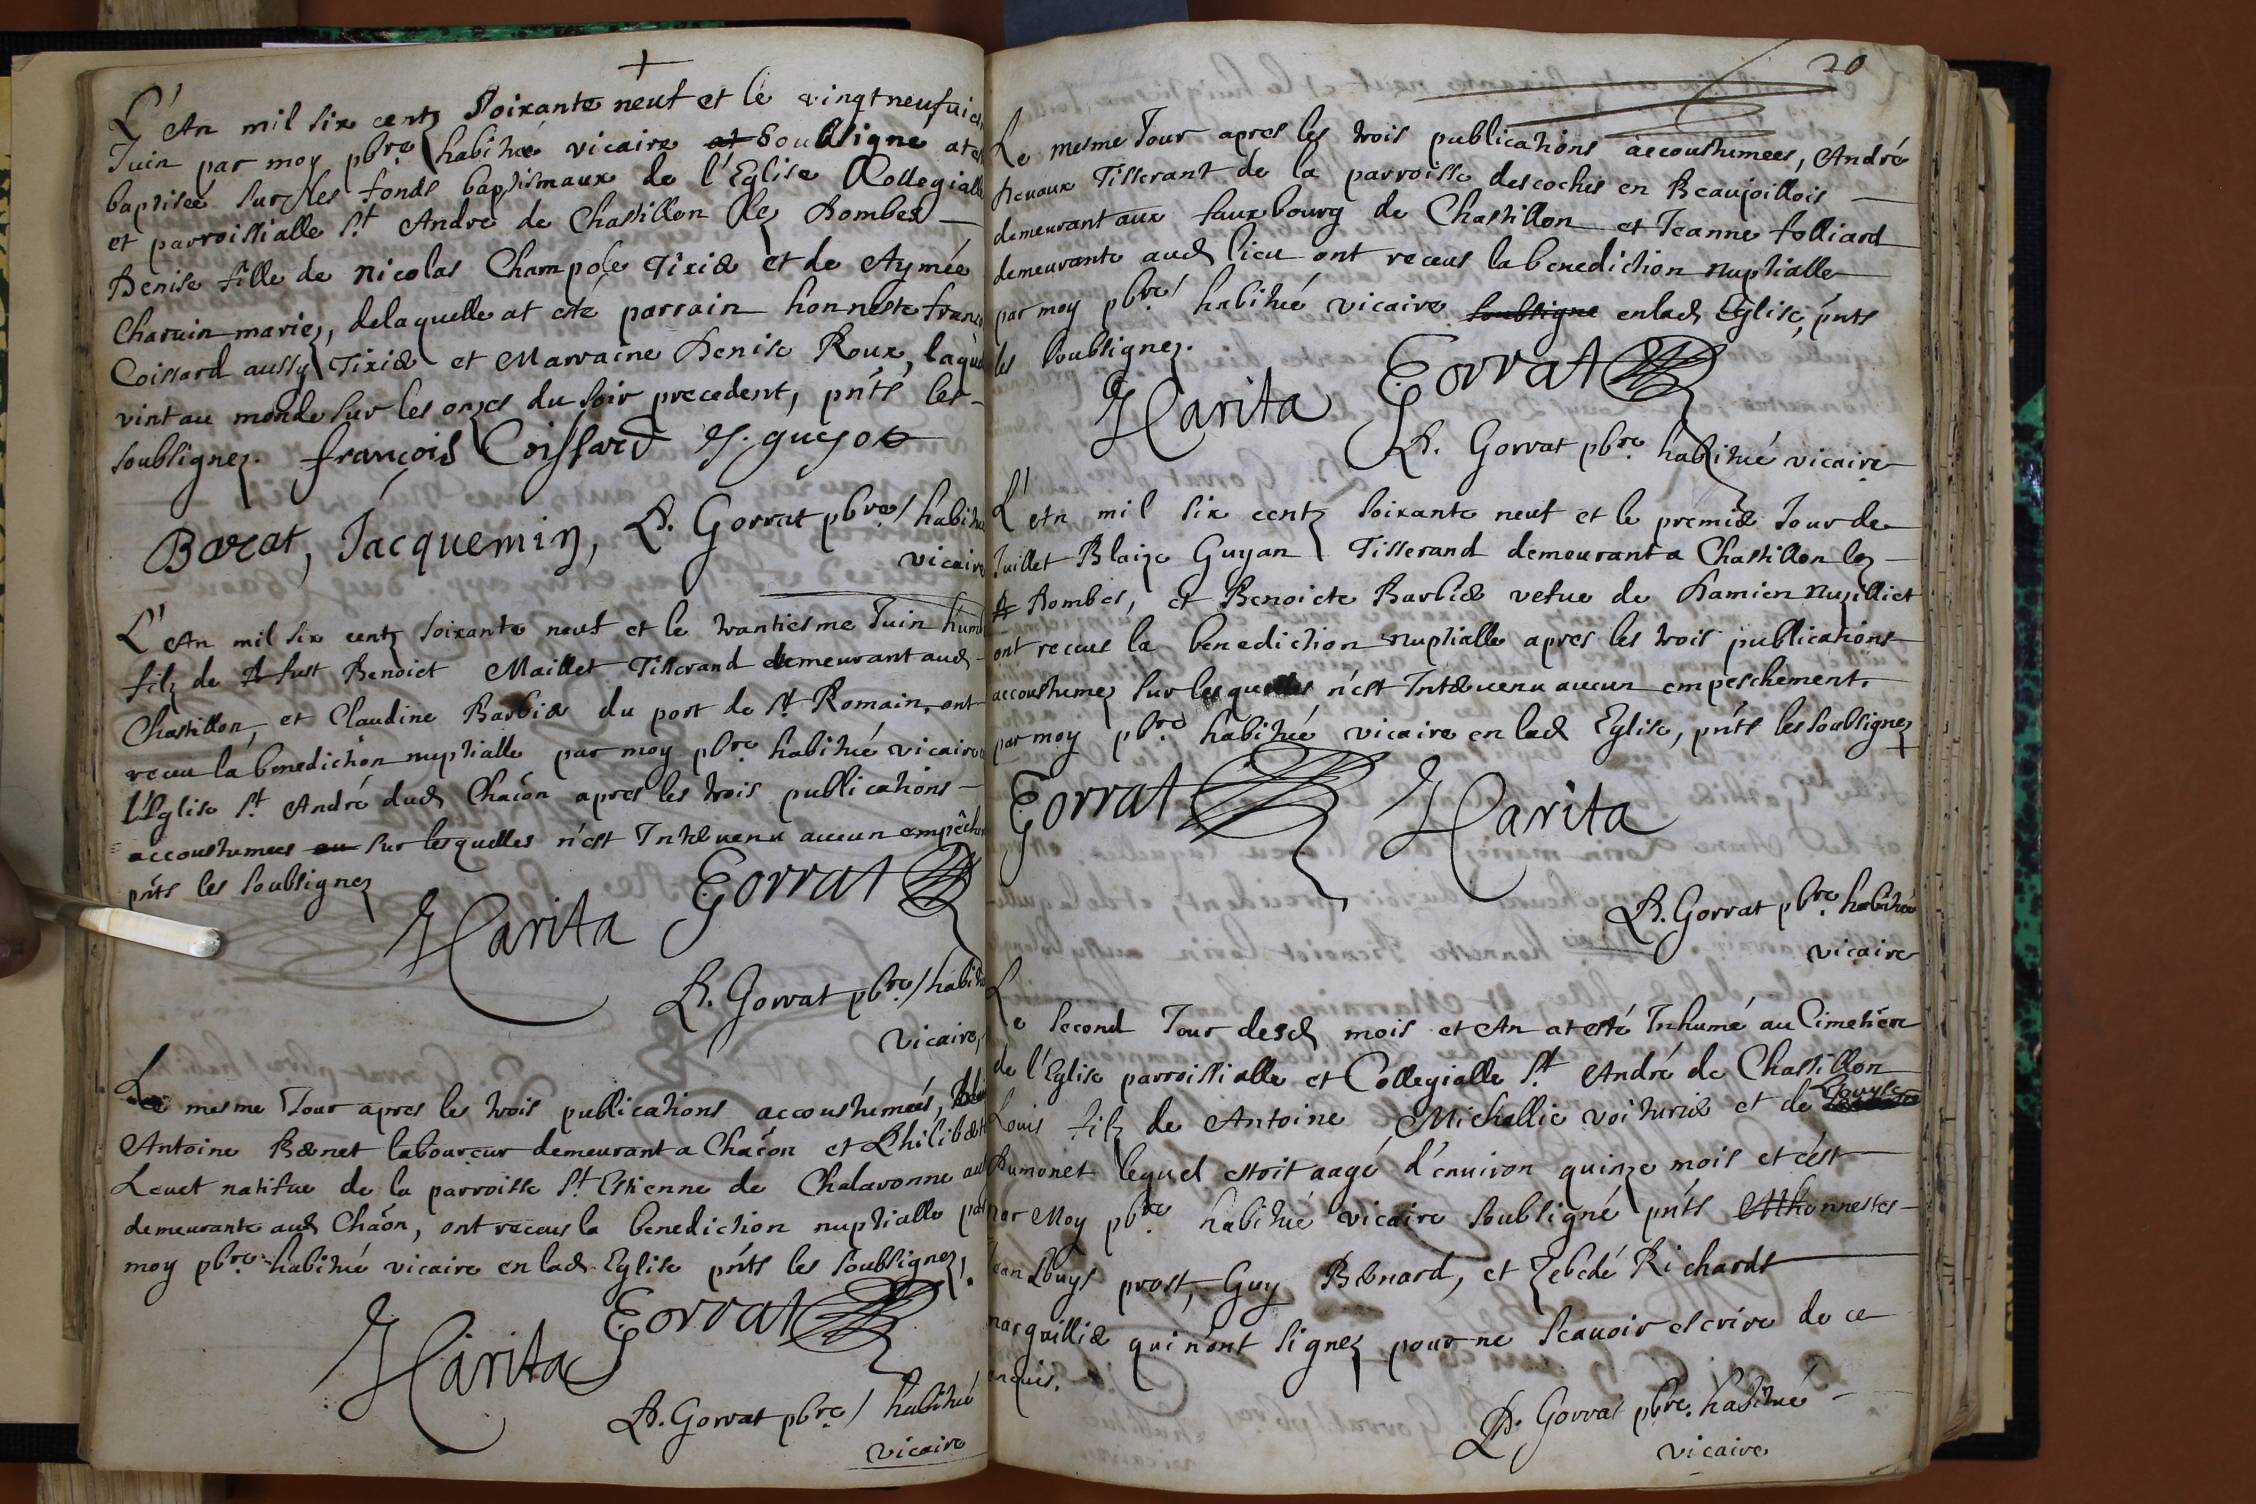 L'An mil six centz Soixante neuf et le vingt neufuie
Juin par moy pbre habitué vicaire at Soubsigne at e
baptiseé sur les fonds baptismaux de l'Eglise Collegialle
et parroissialle St André de Chastillon lez Dombes
Denise fille de Nicolas Champole Tixier et de Aymée
Charuin mariez, delaquelle at eté parrain honneste franc
Coissard aussy Tixier et Marraine Denise Roux, laque
vint au monde sur les onzes du soir precedent, pnts les
soubsignez. françois Coissard guesot
Barat, Jacquemin, D. Gorrat pbre habitu
vicaire
L'An mil six centz soixante neuf et le trantiesme Juin
filz de fust Benoict Maillet Tisserand demeurant aud
Chastillon, et Claudine Barbier du port de St Romain, ont
receu la benediction nuptialle par moy pbre habitué vicaire
L'Eglise St André dud Chaõn apres les trois publications
accoustumees sur lesquelles n'est Interuenu aucun empêche
pnts les soubsignez
Marita Gorrat
D. Gorrat pbre habitu
vicaire,
Le mesme Jour apres les trois publications accoustumeés,
Antoine Bernet laboureur demeurant a Chaõn et Philiberte
Leuet natifue de la parroisse St Estienne de Chalaronne au
demeurante aud Chaõn, ont receus la benediction nuptialle par
moy pbre habitué vicaire en lad Eglise pnts les soubsignez.
Marita Gorrat
D. Gorrat pbre habitué
vicaire
20
Le mesme Jour apres les trois publications accoustumees, André
Tisserant de la parroisse descoches en Beaujoillois
demeurant aux fauxbourg de Chastillon et Jeanne folliard
demeurante aud lieu ont receus la benediction nuptialle
par moy pbre habitué vicaire soubsigne enlad Eglise, pnts
les soubsignez.
Marita Gorrat
D. Gorrat pbre habitué vicaire
L'An mil six centz soixante neuf et le premier Jour de
Juillet Blaize Guyan Tisserand demeurant a Chastillon lez
Dombes, et Benoicte Barbier vefue de Damien Nuzilliet
ont receus la benediction nuptialle apres les trois publications
accoustumez sur lesquelles n'est Interuenu aucun empeschement.
par moy pbre habitué vicaire en lad Eglise, pnts les soubsignez
Gorrat Marita
D. Gorrat pbre habitué
vicaire
Le second Jour desd mois et An at esté Inhumé au Cimetiere
de l'Eglise parroissialle et Collegialle St André de Chastillon
Louis filz de Antoine Michellie voiturier et de Louyse
Dumonet lequel estoit aagé d'enuiron quinze mois et c'est
par Moy pbre habitué vicaire soubsigné pnts honnestes
Jean Louys prost, Guy Bernard, et Zebedé Richardt
marguillier qui n'ont signez pour ne scauoir escrire de ce
enquis.
D. Gorrat pbre habitué
vicaire